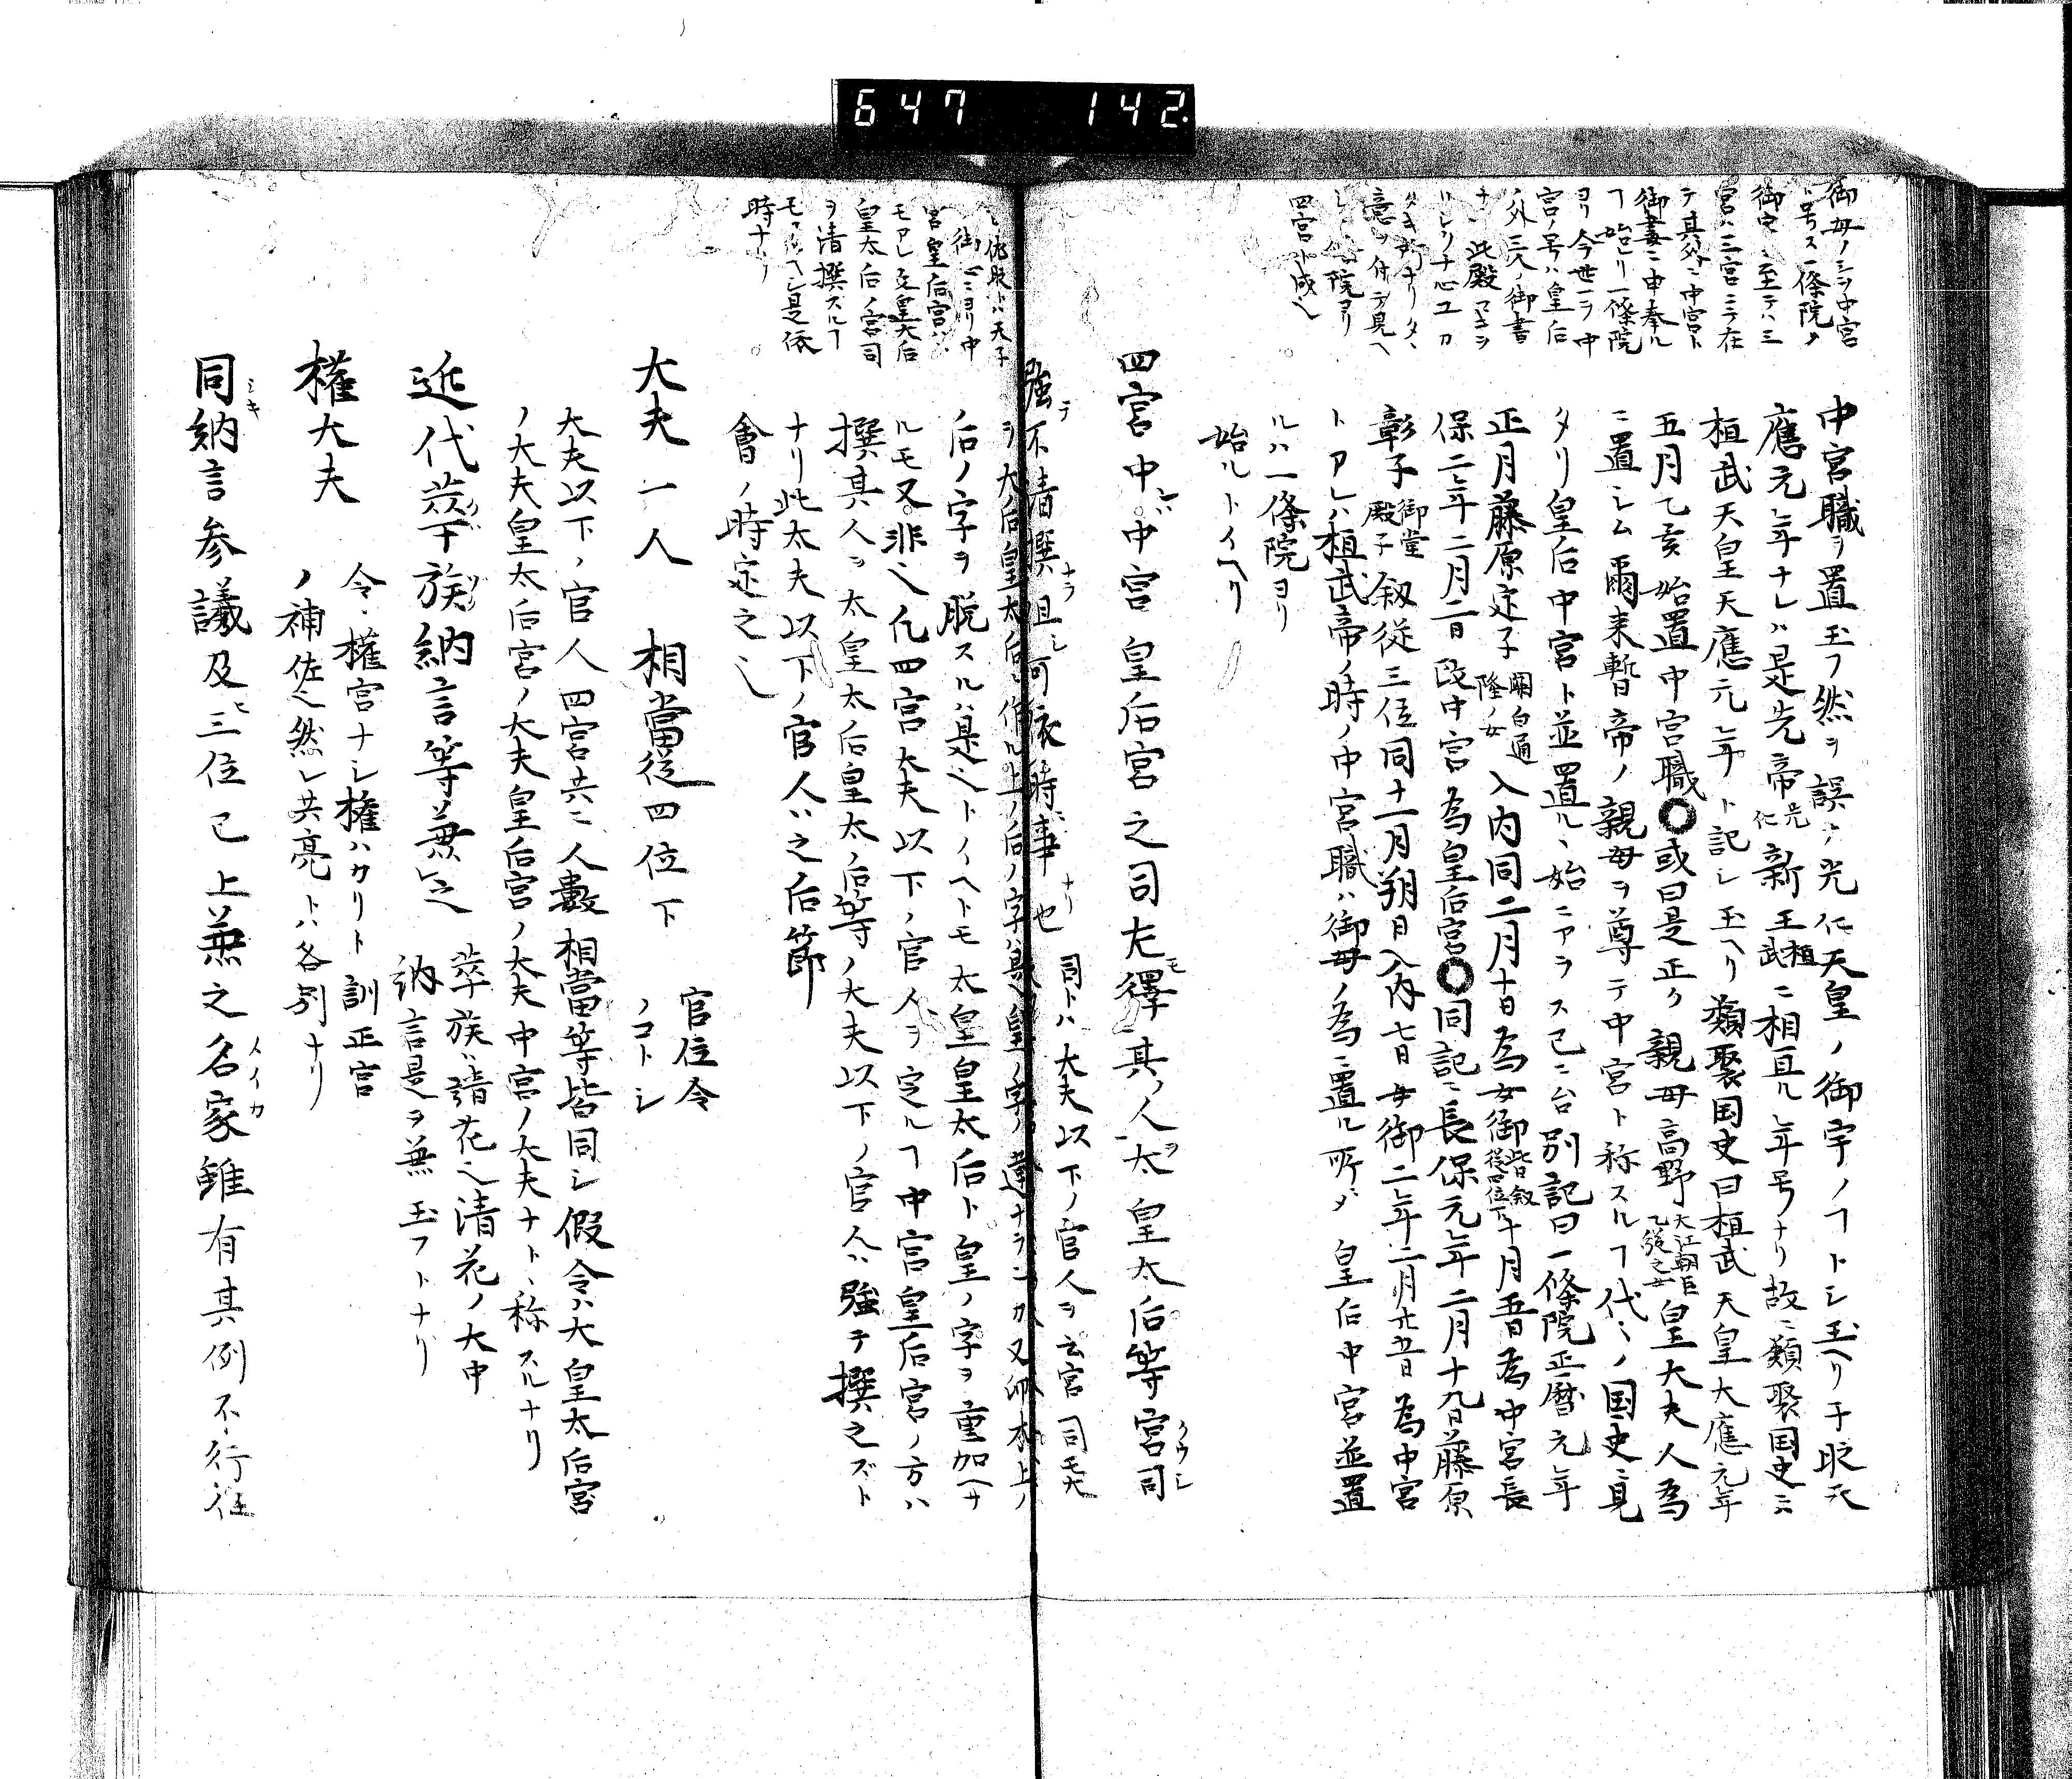 647 142
御母ノ​ヲ中宮
ト号ス一條院ノ
御宇ニ至テハ三
宮ハ三宮ニテ在
テ其外ニ中宮ト
御妻ニ申奉ル
ヿ始レリ一條院
ヨリ今世ニテ中
宮ノ号ハ皇后
ノ外三人ノ御書
ナ此殿
意ヲ付テ見ヘ
院ヨリ
四宮ト成ヘ
中宮職ヲ置玉フ然ヲ誤テ光仁天皇ノ御宇ノヿトシ玉ヘリ于時天
應元年ナレハ是先帝光仁新王桓武ニ相亘ル年号ナリ故ニ類聚国史ニハ
桓武天皇天應元年ト記シ玉ヘリ類聚国史曰桓武天皇天應元年
五月乙亥始置中宮職〇或曰是正ク親母高野大江朝臣乙継之女皇大夫人為
ニ置シム爾来暫帝ノ親母ヲ尊テ中宮ト称スルヿ代々ノ国史ニ見
タリ皇后中宮ト並置ル始ニアラス已ニ台別記曰一條院正暦元年
正月藤原定子関白道隆ノ女入内同二月十日為女御皆叙従四位下十月五日為中宮長
保二年二月二日改中宮為皇后宮〇同記ニ長保元年二月十九日藤原
彰子御堂殿子叙従三位同十一月朔日入内七日女御二年二月廿五日為中宮
トアレハ桓武帝ノ時ノ中宮職ハ御母ノ為ニ置ル所ダ皇后中宮並置
ルハ一條院ヨリ
始ルトイヘリ
四宮中ニハ中宮皇后宮之司尤擇其ノ人ヲ太皇太后等宮司
強テ不清撰且シ可依時ニ事ナリ也 司トハ大夫以下ノ官人ヲ云宮司モ大
ヲ大后皇太后ニ作ル上ノ后ノ字ハ是皇ノ字ノ違ナランカ又流本上ノ
后ノ字ヲ脱スルハ是ヘトノイヘトモ太皇皇太后ト皇ノ字ヲ重加ヘナ
ルモ又非ヘ凡四宮大夫以下ノ官人ヲ定ルヿ中宮皇后宮ノ方ハ
撰其人ヲ太皇太后皇太后等ノ大夫以下ノ官人ハ強テ撰之ズト
ナリ此太夫以下ノ官人ハ之后節
會ノ時定之シ
御ニヨリ中
宮皇后宮ハ
モアレ又皇太后
皇太后ノ宮司
ヲ清撰スルヿ
モアルヘシ是依
時ナリ
大夫 一人 相當従四位下 官位令ノコトシ
大夫以下ノ官人四宮共ニ人數相當等皆同シ假令ハ大皇太后宮
ノ大夫皇太后宮ノ大夫皇后宮ノ大夫中宮ノ大夫ナトヽ称スルナリ
近代華族納言等兼之 華族ハ清花之清花ノ大中納言是ヲ兼玉フトナリ
權大夫 令ニ權官ナシ權ハカリト訓正官ノ補佐之然レ共亮トハ各別ナリ
同納言参議及ヒ三位已上兼之名家雖有其例不行往